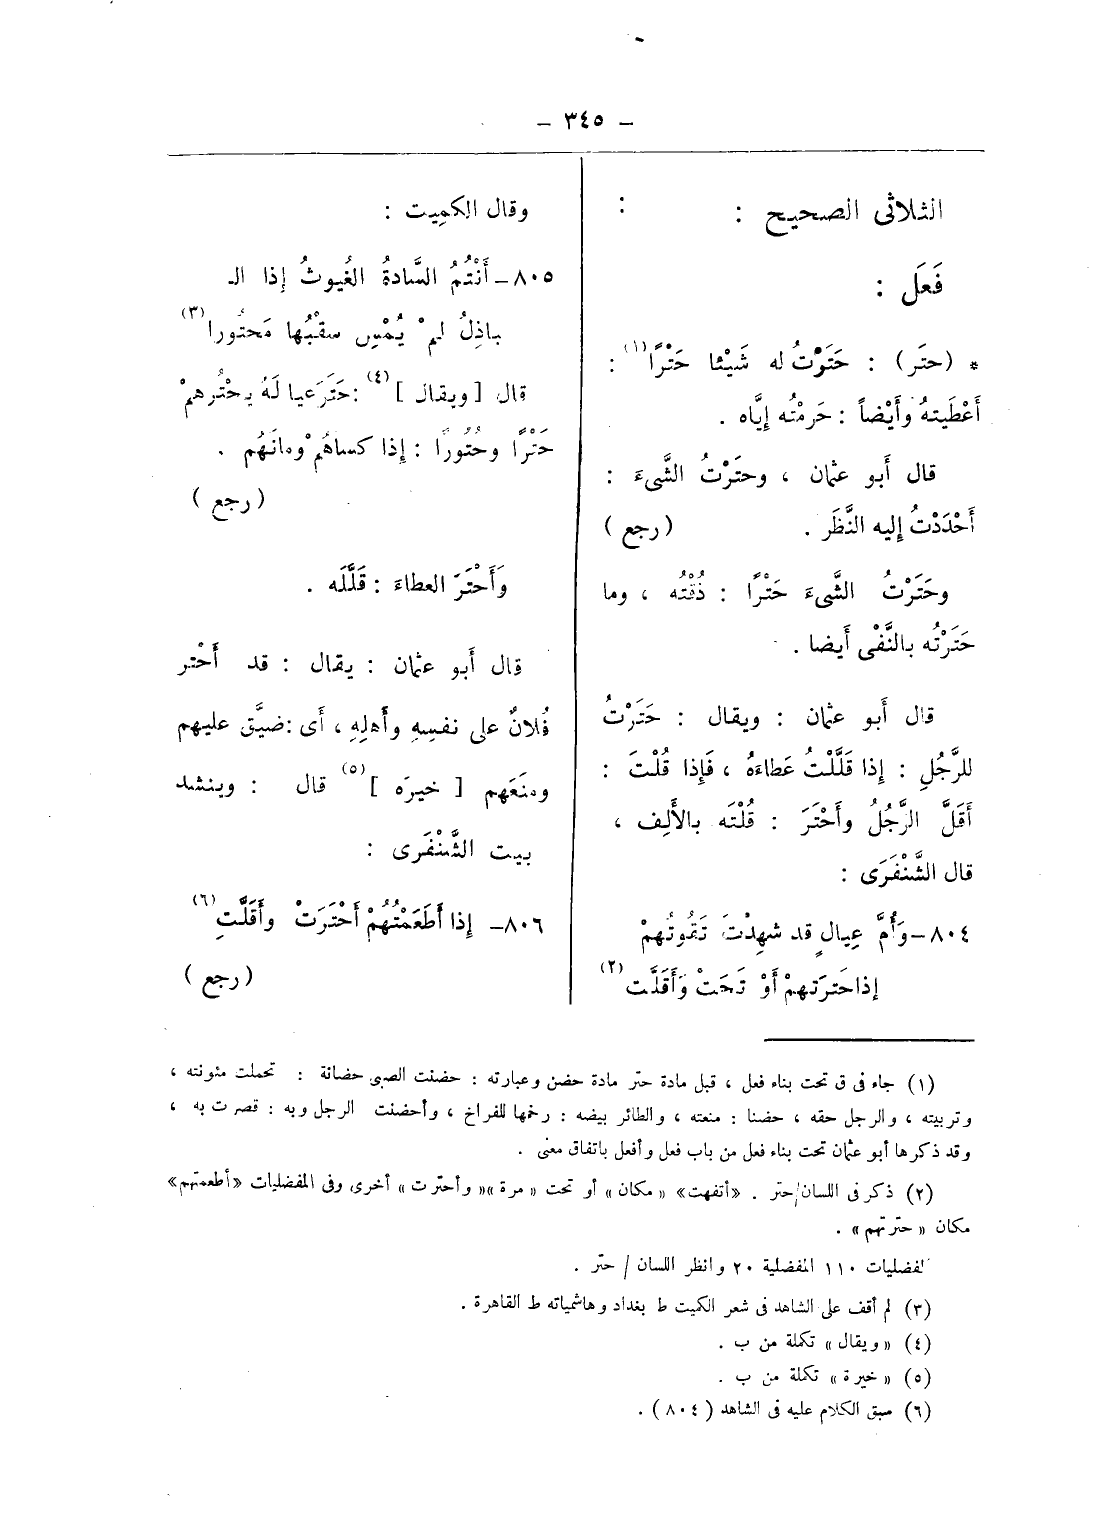 – ٣٤٥ –
الثلاثى الصحيح : :
فَعَل :
* (حتَر) : حَتَرْتُ له شَيْئا حَتْرًا (١) :
أَعْطَيتهُ وأَيْضاً : حَرمْتُه إِيَّاه .
قال أَبو عثمان ، وحتَرْتُ الشَّىءَ :
أَحْدَدْتُ إِليه النَّظَر . ( رجع )
وحَتَرْتُ الشَّىءَ حَتْرًا : ذُقْتُه ، وما
حَتَرْتُه بالنَّفْى أَيضا .
قال أَبو عثمان : ويقال : حَتَرْتُ
للرَّجُلِ : إِذا قَلَّلْتُ عَطاءَهُ ، فَإِذا قُلْتَ :
أَقَلَّ الرَّجُلُ وأَحْتَرَ : قُلْتَه بالأَلِف ،
قال الشَّنْفَرَى :
٨٠٤ – وَأُمَّ عِيالٍ قد شهِدْتَ تَقُوتُهمْ
إِذاحَترَتهمْ أَوْ تَحَتْ وَأَقَلَّت (٢)
وقال الكمِيت :
٨٠٥ – أَنْتُمُ السَّادةُ الغُيوثُ إِذا الـ
باذِلُ لمْ يُمْسِ سقْبُها مَحتُورا (٣)
قال [ ويقال ] (٤) : حَتَرَعيا لَهُ يحْتُرهمْ
حَتْرًا وحُتُورًا : إِذا كساهُمْ ومانَهُم .
( رجع )
وَأَحْتَرَ العطاءَ : قَلَّلَه .
قال أَبو عثمان : يقال : قد أَحْتر
فُلانٌ على نفسِهِ وأَهلِهِ ، أَى : ضيَّق عليهم
ومنَعَهم [ خيرَه ] (٥) قال : وينشد
بيت الشَّنْفَرى :
٨٠٦ – إِذا أَطَعَمْتُهُمْ أَحْتَرَتْ وأَقَلَّتِ (٦)
( رجع )
(١) جاء فى ق تحت بناء فعل ، قبل مادة حتر مادة حضن وعبارته : حضنت الصبى حضانة : تحملت مئونته ،
وتربيته ، والرجل حقه ، حضنا : منعته ، والطائر بيضه : رخمها للفراخ ، وأحضنت الرجل وبه : قصرت به ،
وقد ذكرها أبو عثمان تحت بناء فعل من باب فعل وأفعل باتفاق معنى .
(٢) ذكر فى اللسان/حتر . «أتفهت» «مكان» أو تحت «مرة»« وأحترت» أخرى وفى المفضليات «أطعمتهم»
مكان « حترتهم » .
لفضليات ١١٠ المفضلية ٢٠ وانظر اللسان / حتر .
(٣) لم أقف على الشاهد فى شعر الكميت ط بغداد وهاشمياته ط القاهرة .
(٤) « ويقال » تكملة من ب .
(٥) « خيرة » تكملة من ب .
(٦) سبق الكلام عليه فى الشاهد ( ٨٠٤ ) .